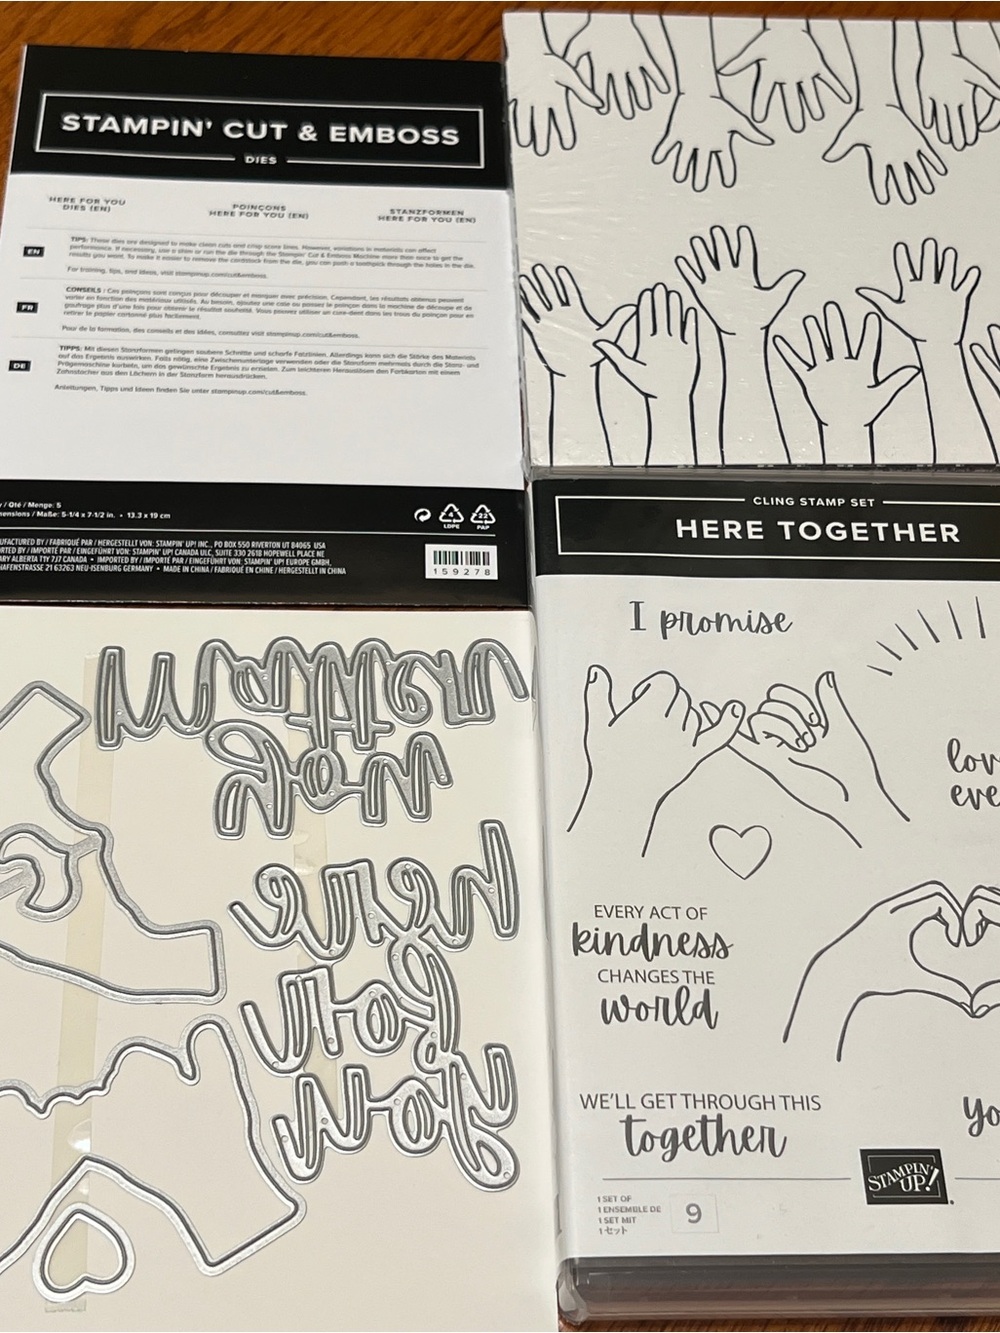 STAMPIN' CUT & EMBOSS
DIES
HERE FOR YOU
DIES (EN)
POINÇONS
HERE FOR YOU (EN)
STANZFORMEN
HERE FOR YOU (EN)
EN
TIPS: These dies are designed to make clean cuts and crisp score lines. However, variations in materials can affect
performance. If necessary, use a shim or run the die through the Stampin' Cut & Emboss Machine more than once to get the
results you want. To make it easier to remove the cardstock from the die, you can push a toothpick through the holes in the die.
For training, tips, and ideas, visit stampinup.com/cut&emboss.
FR
CONSEILS : Ces poinçons sont conçus pour découper et marquer avec précision. Cependant, les résultats obtenus peuvent
varier en fonction des matériaux utilisés. Au besoin, ajoutez une cale ou passez le poinçon dans la machine de découpe et de
gaufrage plus d'une fois pour obtenir le résultat souhaité. Vous pouvez utiliser un cure-dent dans les trous du poinçon pour en
retirer le papier cartonné plus facilement.
Pour de la formation, des conseils et des idées, consultez visit stampinup.com/cut&emboss.
DE
TIPPS: Mit diesen Stanzformen gelingen saubere Schnitte und scharfe Falzlinien. Allerdings kann sich die Stärke des Materials
auf das Ergebnis auswirken. Falls nötig, eine Zwischenunterlage verwenden oder die Stanzform mehrmals durch die Stanz- und
Prägemaschine kurbeln, um das gewünschte Ergebnis zu erzielen. Zum leichteren Herauslösen den Farbkarton mit einem
Zahnstocher aus den Löchern in der Stanzform herausdrücken.
Anleitungen, Tipps und Ideen finden Sie unter stampinup.com/cut&emboss.
/ Qté / Menge: 5
/ Maße: 5-1/4 x 7-1/2 in. • 13.3 x 19 cm
4
LDPE
22
PAP
/ FABRIQUÉ PAR / HERGESTELLT VON: STAMPIN' UP! INC., PO BOX 550 RIVERTON UT 84065 USA
/ IMPORTÉ PAR / EINGEFÜHRT VON: STAMPIN' UP! CANADA ULC, SUITE 330 2618 HOPEWELL PLACE NE
ALBERTA T1Y 7J7 CANADA • IMPORTED BY / IMPORTÉ PAR / EINGEFÜHRT VON: STAMPIN' UP! EUROPE GMBH,
21 63263 NEU-ISENBURG GERMANY • MADE IN CHINA / FABRIQUÉ EN CHINE / HERGESTELLT IN CHINA
159278
matter
you
here
for
you
CLING STAMP SET
HERE TOGETHER
I promise
EVERY ACT OF
kindness
CHANGES THE
world
WE'LL GET THROUGH THIS
together
STAMPIN' UP!
1 SET OF
1 ENSEMBLE DE
1 SET MIT
1セット
9